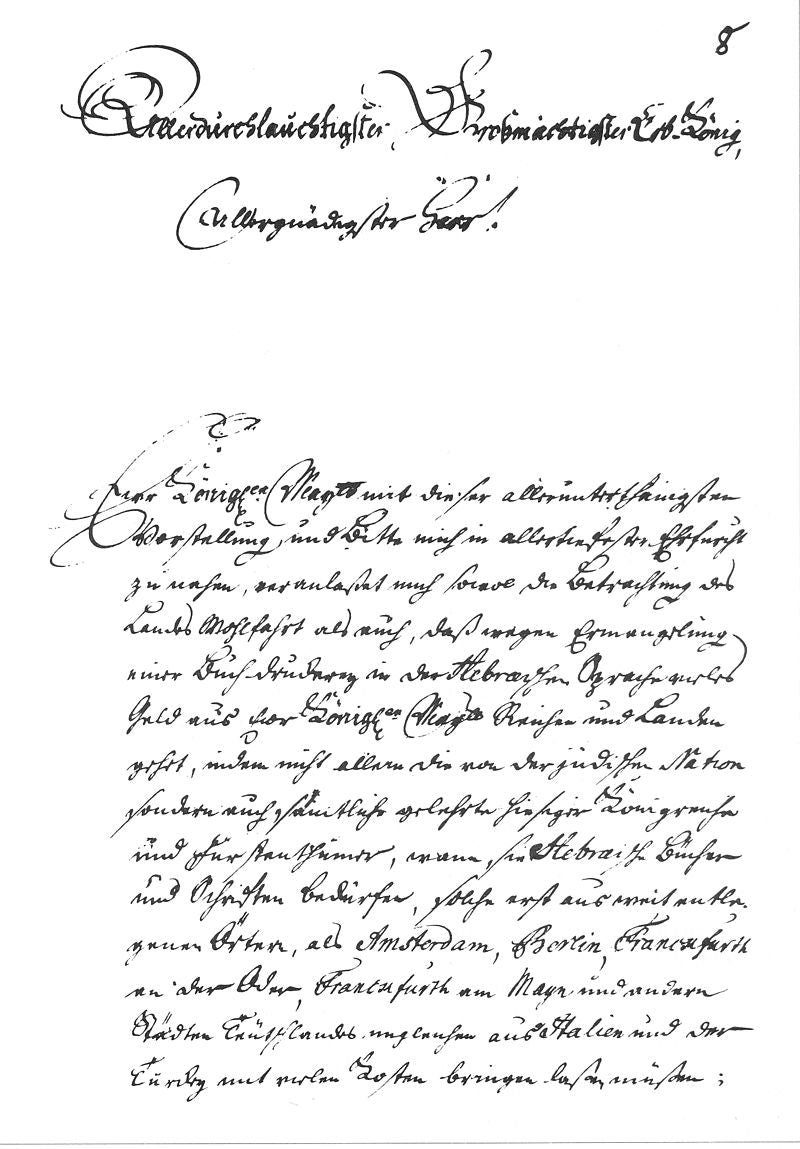 8
Allerdurchlauchtigster, Großmächtigster Erb-König,
Allergnädigster Herr!
Königl en Mayt mit dieser allerunterthänigsten
Vorstellung, und Bitte mich in allertiefester Ehrfurcht
zu nahen, veranlaßet mich sowol die Betrachtung des
Landes Wohlfahrt als auch, daß wegen Ermangelung
einer Buchdruckerey in der Hebraischen Sprache vieles
Geld aus Königl en Mayt Reichen und Landen
gehet, indem nicht allein die von der jüdischen Nation
sondern auch sämtliche gelehrte hiesiger Königreiche
und Fürstenthümer, wann sie Hebraische Bücher
und Schriften bedürfen, solche erst aus weit entle-
genen Örtern, als Amsterdam, Berlin, Franckfurth
an der Oder, Franckfurth am Mayn und andern
Städten Teütschlandes ungleichen aus Italien und der
Turckey mit vielen Kosten bringen laßen müßen;